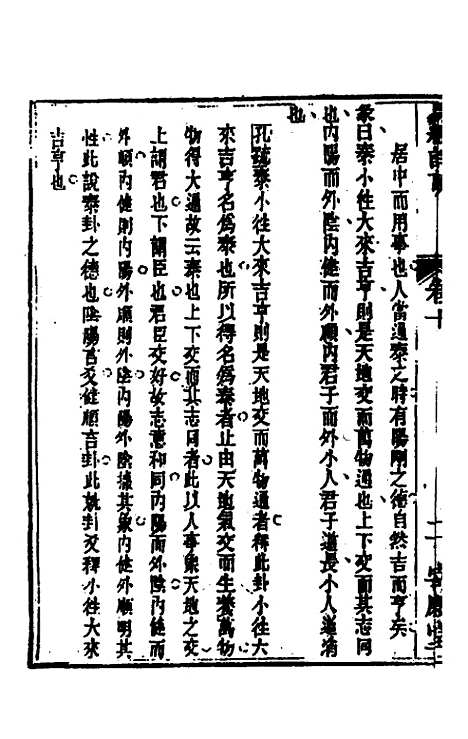 卷十
居中而用事也人當通泰之時有陽剛之德自然吉而亨矣
彖曰泰小徃大來吉亨則是天地交而萬物通也上下交而其志同
也內陽而外陰內健而外順內君子而外小人君子道長小人道消
也
孔疏泰小徃大來吉亨則是天地交而萬物通者釋此卦小徃大
來吉亨名爲泰也所以得名爲泰者止由天地氣交而生養萬物
物得大通故云泰也上下交而其志同者此以人事象天地之交
上謂君也下謂臣也君臣交好故志意和同內陽而外陰內健而
外順內健則內陽外順則外陰內陽外陰據其象內健外順明其
性此說泰卦之德也陰陽言爻健順言卦此就卦爻釋小徃大來
吉亨也